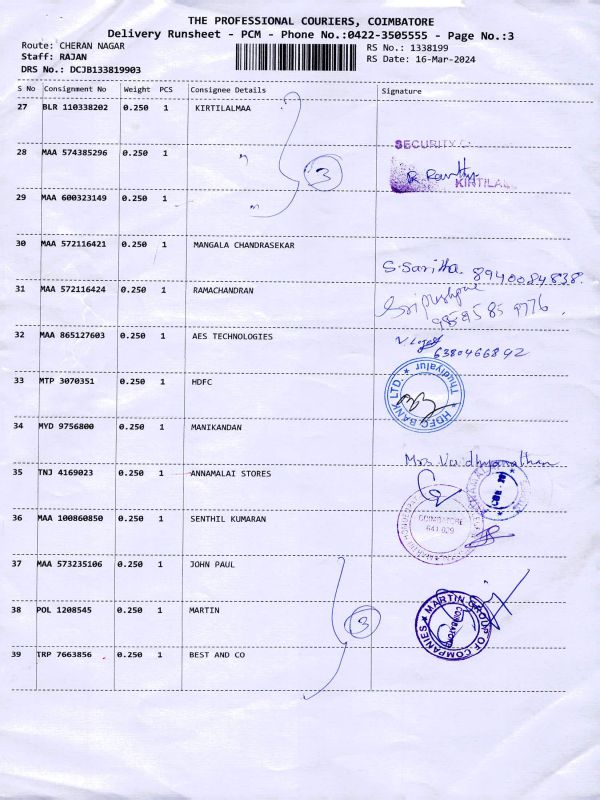 THE PROFESSIONAL COURIERS, COIMBATORE
Delivery Runsheet - PCM - Phone No.:0422-3505555 - Page No.:3
Route: CHERAN NAGAR RS No.: 1338199
Staff: RAJAN RS Date: 16-Mar-2024
DRS No.: DCJB133819903
S No Consignment No Weight PCS Consignee Details Signature
27 BLR 110338202 0.250 1 KIRTILALMAA
SECURITY
28 MAA 574385296 0.250 1 〃
3
KIRTILAL
29 MAA 600323149 0.250 1 〃
30 MAA 572116421 0.250 1 MANGALA CHANDRASEKAR
S. Saritha 8940084838.
31 MAA 572116424 0.250 1 RAMACHANDRAN
32 MAA 865127603 0.250 1 AES TECHNOLOGIES
6380466842
33 MTP 3070351 0.250 1 HDFC
HDFC BANK LTD. * Thudiyalur *
34 MYD 9756800 0.250 1 MANIKANDAN
Mrs Vaidhyanathan
35 TNJ 4169023 0.250 1 ANNAMALAI STORES
36 MAA 100860850 0.250 1 SENTHIL KUMARAN
COIMBATORE
641 029
37 MAA 573235106 0.250 1 JOHN PAUL
38 POL 1208545 0.250 1 MARTIN
3
* MARTIN GROUP OF COMPANIES
COIMBATORE
39 TRP 7663856 0.250 1 BEST AND CO